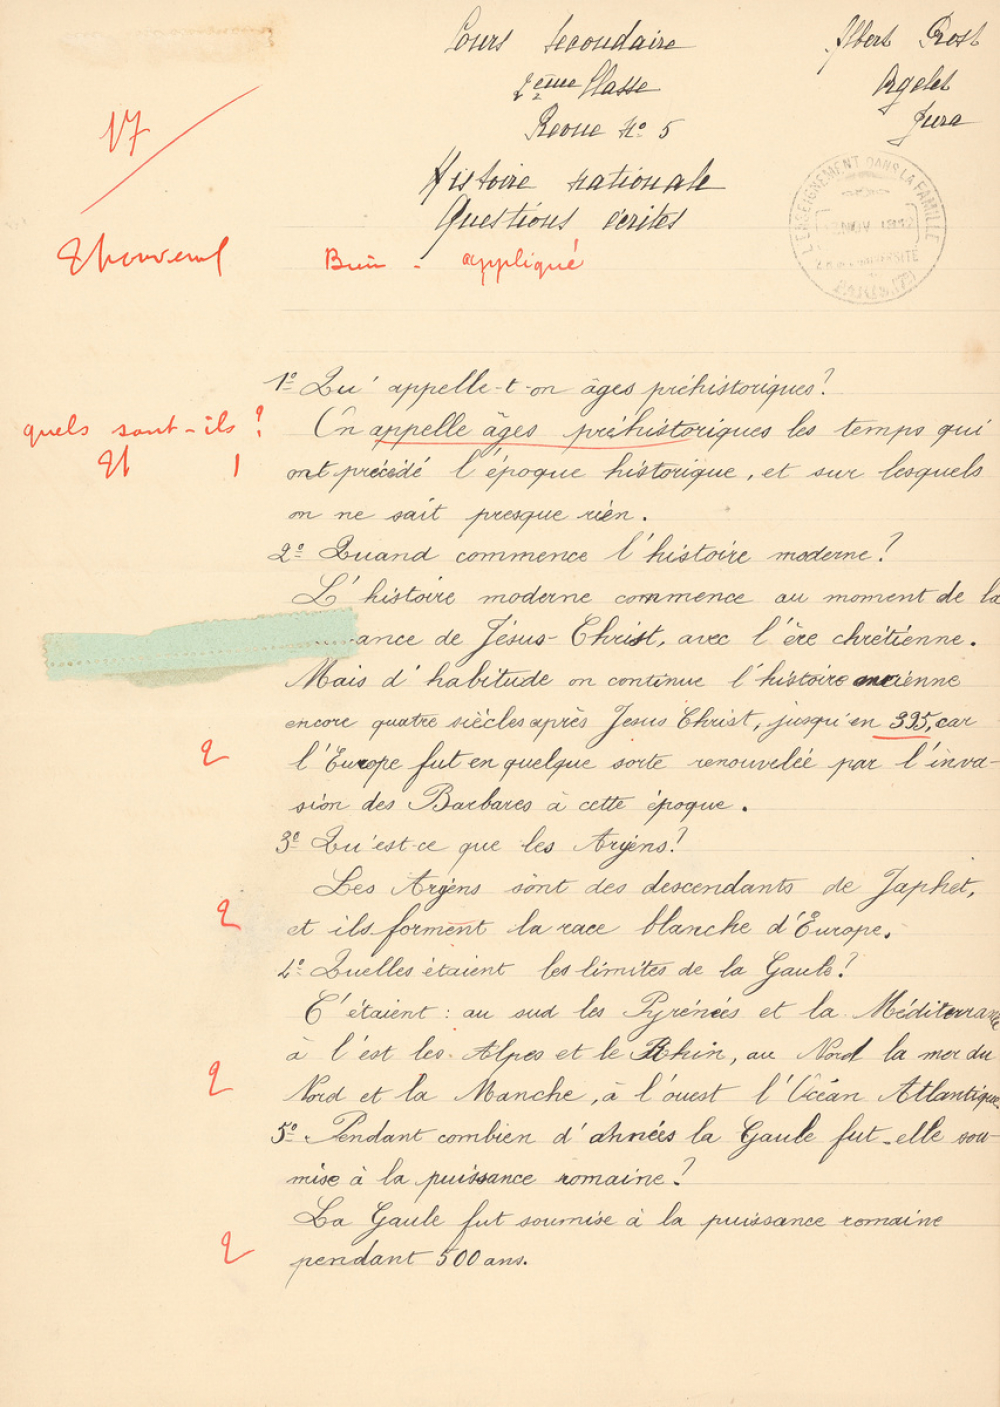 Cours secondaire
2ème Classe
Revue No 5
Albert Prost
Orgelet
Jura
17
Histoire nationale
Questions écrites
L'ENSEIGNEMENT DANS LA FAMILLE
NOV
Bien - appliqué
1o Qu'appelle-t-on âges préhistoriques?
quels sont-ils?
On appelle âges préhistoriques les temps qui
ont précédé l'époque historique, et sur lesquels
on ne sait presque rien.
2o Quand commence l'histoire moderne?
L'histoire moderne commence au moment de la
ance de Jésus-Christ, avec l'ère chrétienne.
Mais d'habitude on continue l'histoire ancienne
encore quatre siècles après Jesus Christ, jusqu'en 395, car
2
l'Europe fut en quelque sorte renouveleé par l'inva-
sion des Barbares à cette époque.
3o Qu'est-ce que les Aryens?
Les Aryens sont des descendants de Japhet,
2
et ils forment la race blanche d'Europe.
4o Quelles étaient les limites de la Gaule?
C'étaient: au sud les Pyrénées et la Méditerranée
à l'est les Alpes et le Rhin, au Nord la mer du
2
Nord et la Manche, à l'ouest l'Océan Atlantique.
5o Pendant combien d'années la Gaule fut-elle sou-
mise à la puissance romaine?
La Gaule fut soumise à la puissance romaine
2
pendant 500 ans.